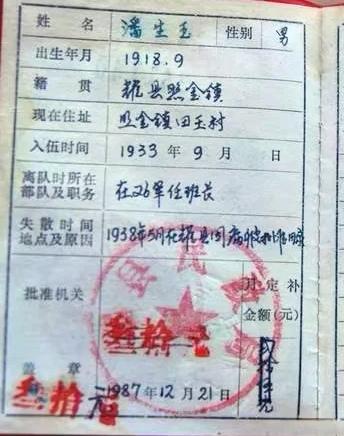 姓名 潘生玉 性别 男
出生年月 1918.9
籍贯 耀县照金镇
现在住址 照金镇田玉村
入伍时间 1933年9月 日
离队时所在
部队及职务 在26军任班长
失散时间
地点及原因 1938年5月在耀县因病
批准机关 月定补
金额(元)
叁拾元
盖章 1987年12月21日
叁拾元